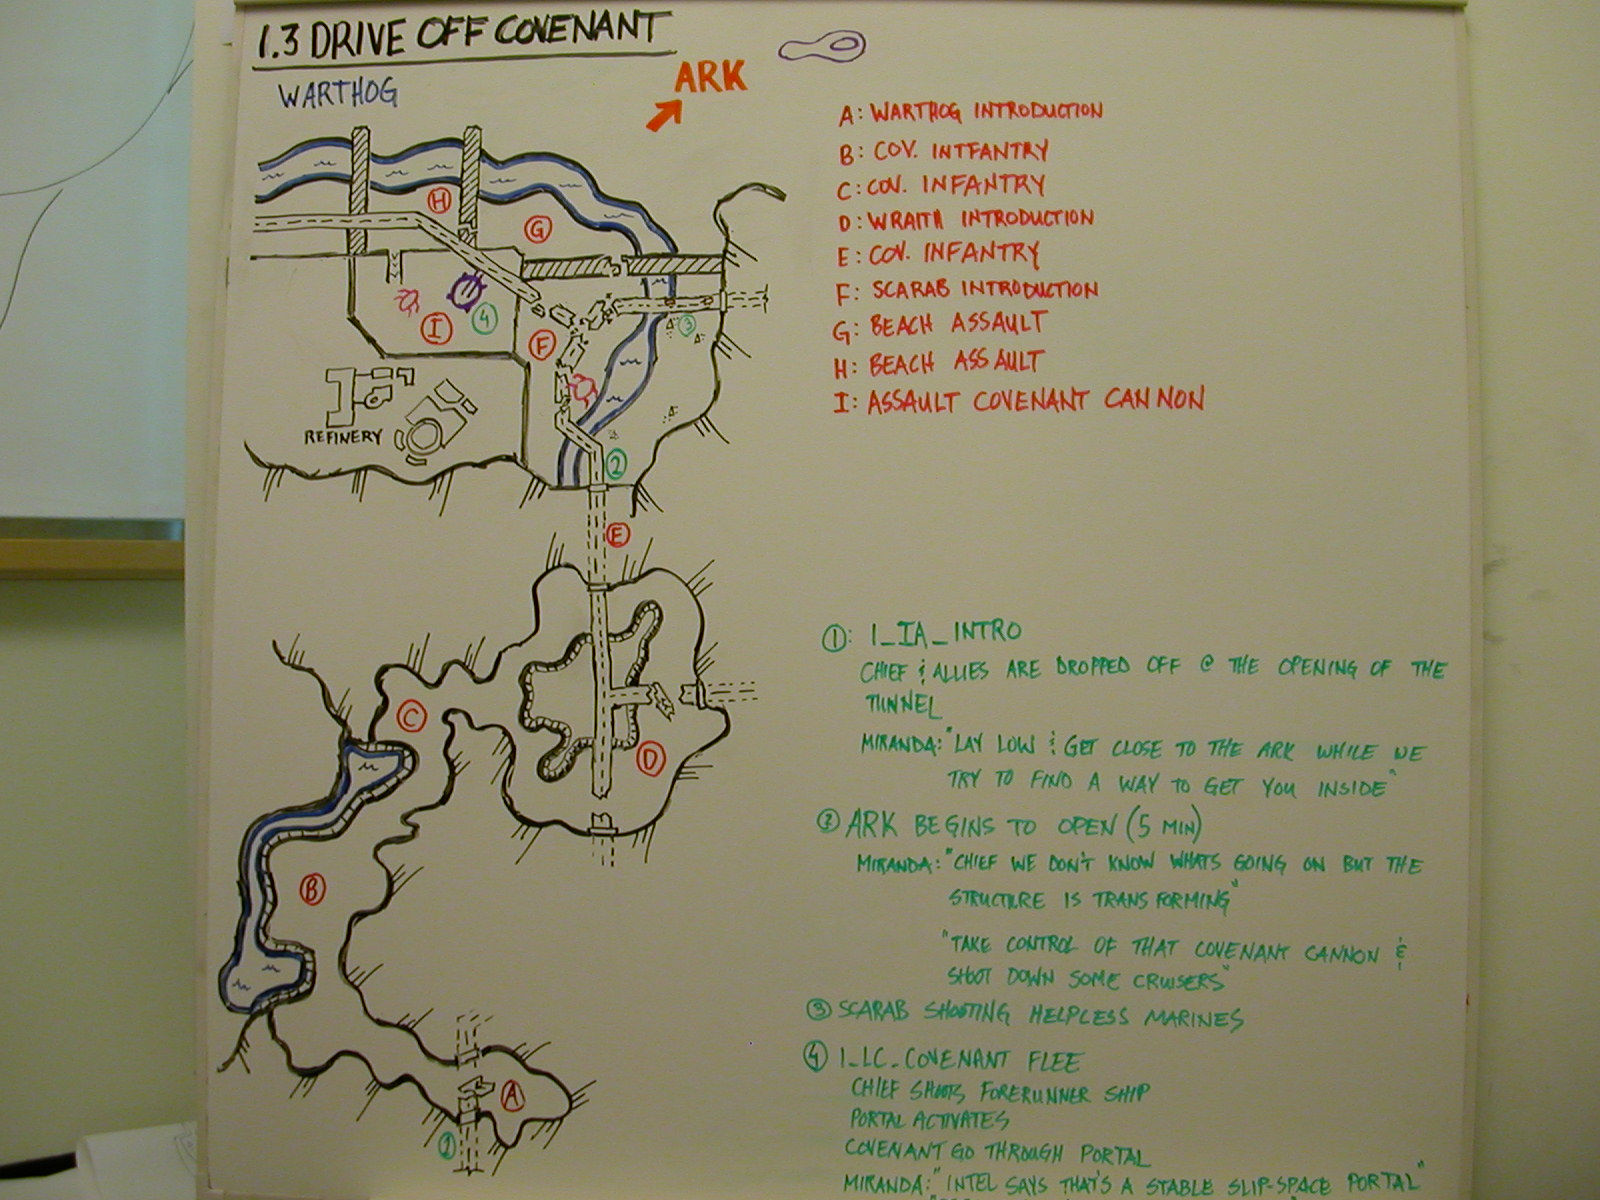 1.3 DRIVE OFF COVENANT
WARTHOG
ARK
A: WARTHOG INTRODUCTION
B: COV. INTFANTRY
C: COV. INFANTRY
D: WRAITH INTRODUCTION
E: COV. INFANTRY
F: SCARAB INTRODUCTION
G: BEACH ASSAULT
H: BEACH ASSAULT
I: ASSAULT COVENANT CANNON
H
G
I
4
F
3
REFINERY
2
E
C
D
B
A
1
1: 1_IA_INTRO
CHIEF & ALLIES ARE DROPPED OFF @ THE OPENING OF THE
TUNNEL
MIRANDA: "LAY LOW & GET CLOSE TO THE ARK WHILE WE
TRY TO FIND A WAY TO GET YOU INSIDE"
2 ARK BEGINS TO OPEN (5 MIN)
MIRANDA: "CHIEF WE DON'T KNOW WHATS GOING ON BUT THE
STRUCTURE IS TRANSFORMING"
"TAKE CONTROL OF THAT COVENANT CANNON &
SHOOT DOWN SOME CRUISERS"
3 SCARAB SHOOTING HELPLESS MARINES
4 1_LC_COVENANT FLEE
CHIEF SHOOTS FORERUNNER SHIP
PORTAL ACTIVATES
COVENANT GO THROUGH PORTAL
MIRANDA: "INTEL SAYS THAT'S A STABLE SLIP-SPACE PORTAL"